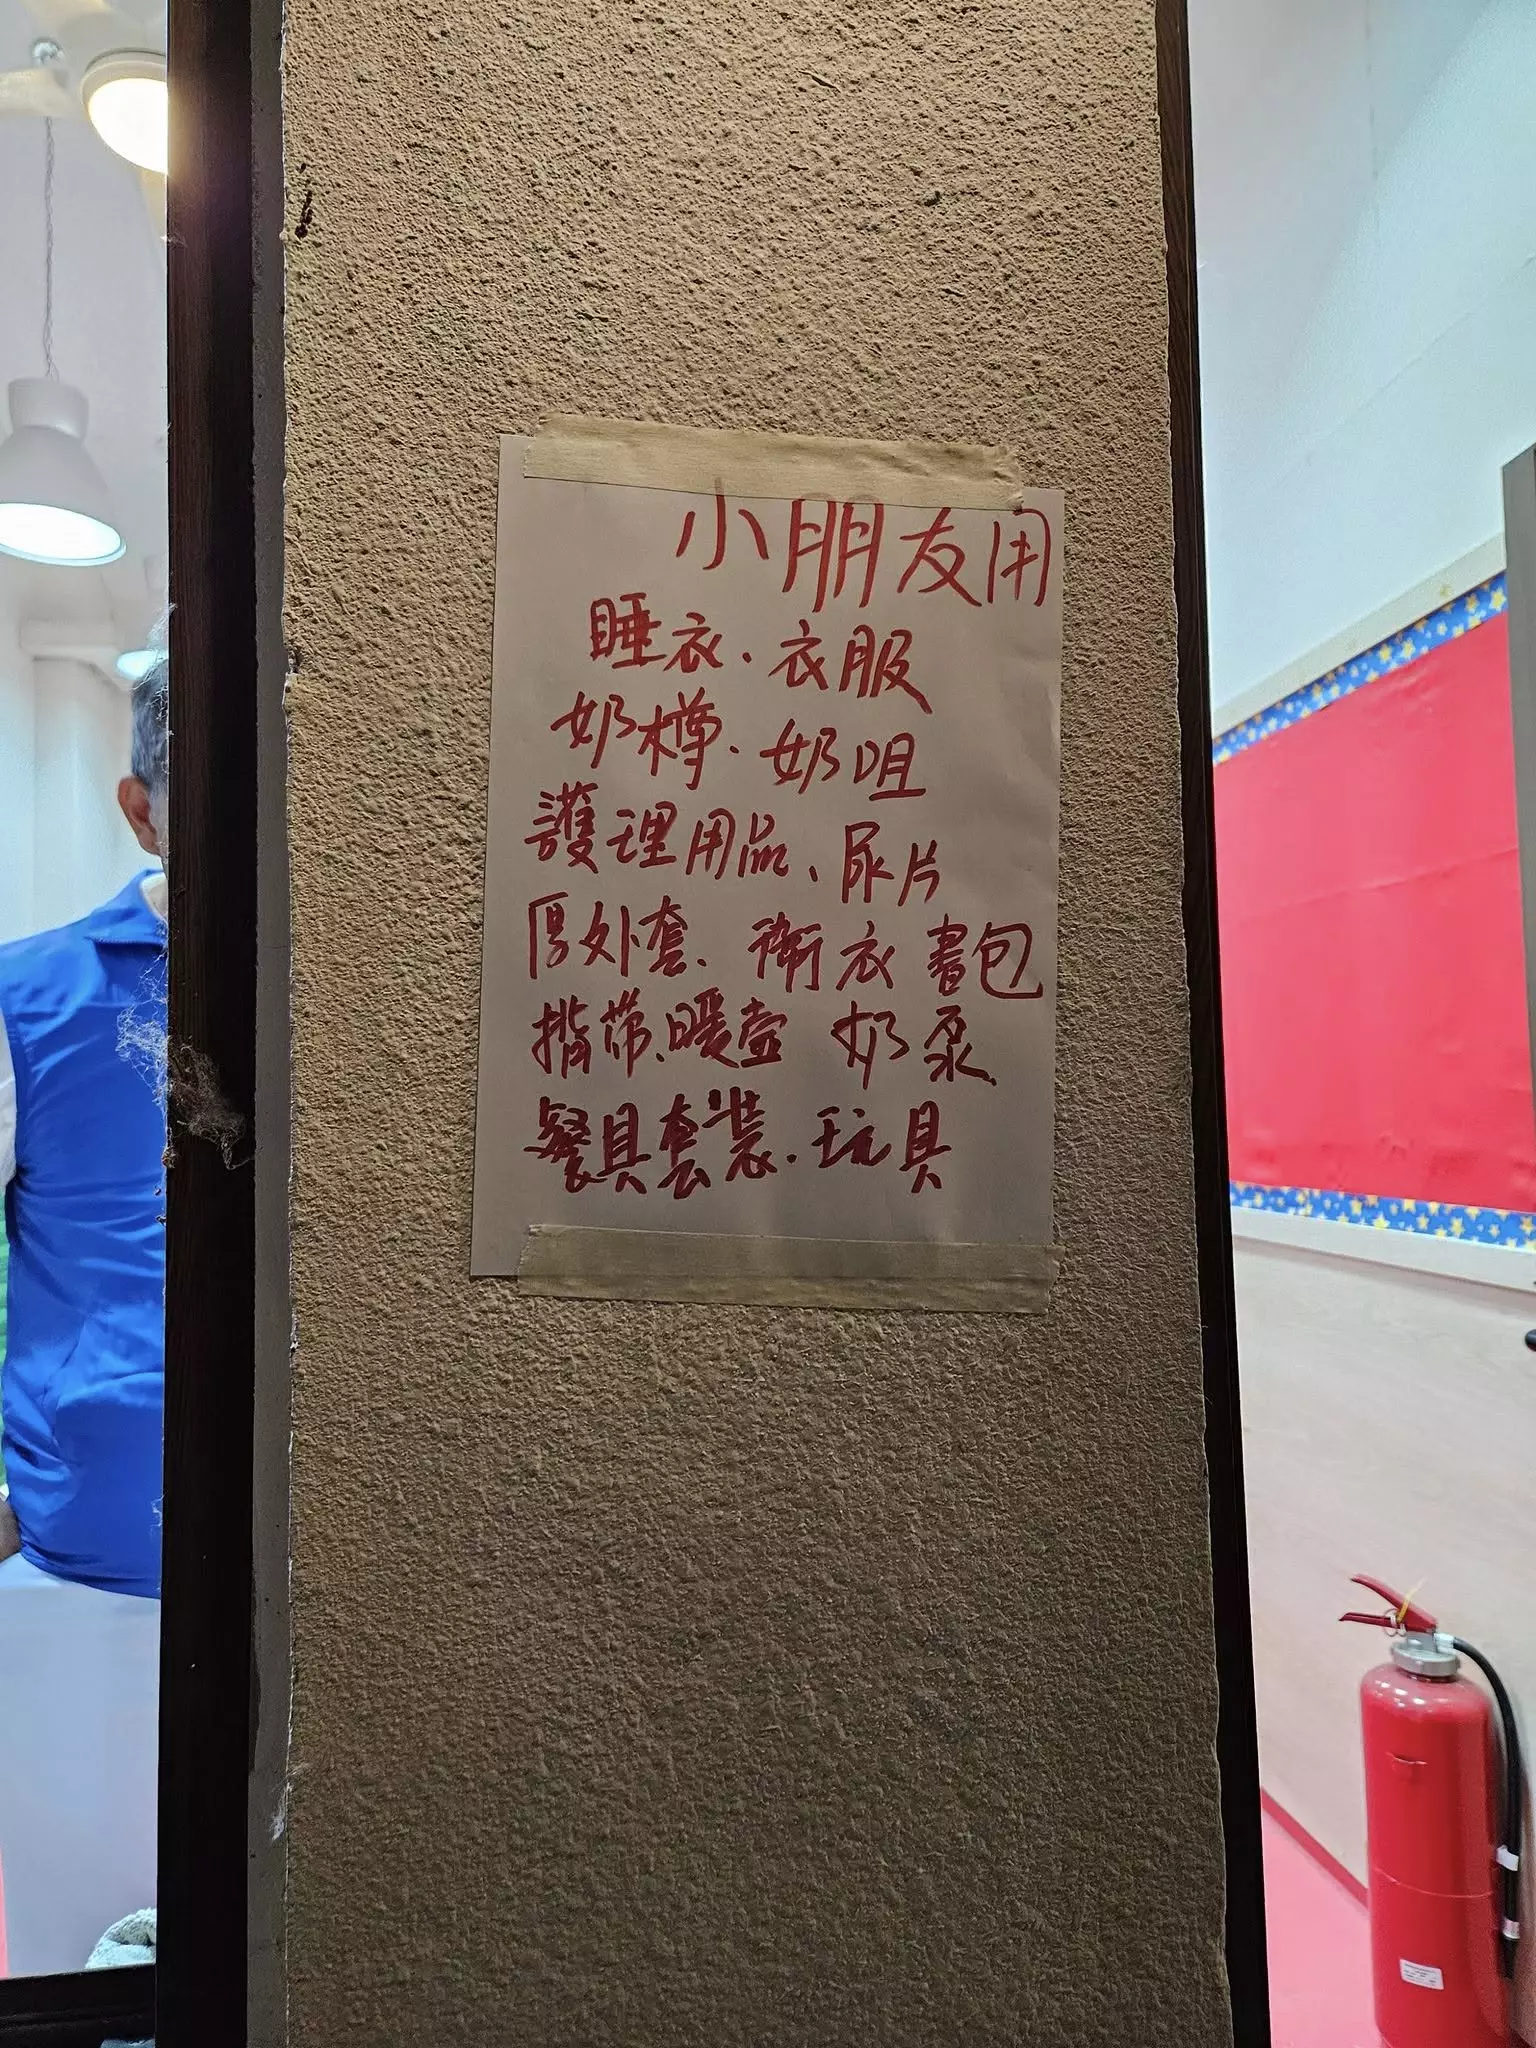 小朋友用
睡衣．衣服
奶樽．奶咀
護理用品、尿片
厚外套、衛衣 書包
揹帶、暖壺 奶泵
餐具套裝．玩具